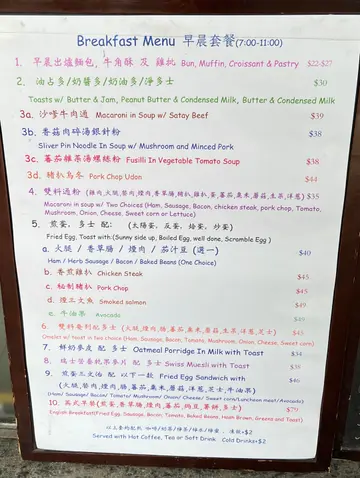 Breakfast Menu 早晨套餐(7:00-11:00)
1. 早晨出爐麵包, 牛角酥 及 雞批 Bun, Muffin, Croissant & Pastry $22-$27
2. 油占多/奶醬多/奶油多/淨多士 $30
Toasts w/ Butter & Jam, Peanut Butter & Condensed Milk, Butter & Condensed Milk
3a. 沙嗲牛肉通 Macaroni in Soup w/ Satay Beef $39
3b. 香菇肉碎湯銀針粉 $38
Sliver Pin Noodle In Soup w/ Mushroom and Minced Pork
3c. 蕃茄雜菜湯螺絲粉 Fusilli In Vegetable Tomato Soup $38
3d. 豬扒烏冬 Pork Chop Udon $44
4. 雙料通粉 (雞肉,火腿,腸肉,煙肉,香草腸,豬扒,雞扒,蛋,蕃茄,粟米,蘑菇,生菜,洋蔥) $35
Macaroni in soup w/ Two Choices (Ham, Sausage, Bacon, chicken steak, pork chop, Tomato, Mushroom, Onion, Cheese, Sweet corn or Lettuce)
5. 煎蛋, 多士 配: (太陽蛋, 反蛋, 烚蛋, 炒蛋)
Fried Egg, Toast with:(Sunny side up, Boiled Egg, well done, Scramble Egg )
a. 火腿 / 香草腸 / 煙肉 / 茄汁豆 (選一) $40
Ham / Herb Sausage / Bacon / Baked Beans (One Choice)
b. 香煎雞扒 Chicken Steak $45
c. 秘制豬扒 Pork Chop $45
d. 煙三文魚 Smoked salmon $49
e. 牛油果 Avocado $49
6. 雙料奄列飽多士 (火腿,煙肉,腸,蕃茄,粟米,蘑菇,生菜,洋蔥,芝士) $45
Omelet w/ toast in two choice (Ham, Sausage, Bacon, Tomato, Mushroom, Onion, Cheese, Sweet corn)
7. 鮮奶麥皮 配 多士 Oatmeal Porridge In Milk with Toast $34
8. 瑞士營養乾果麥片 配 多士 Swiss Muesli with Toast $38
9. 煎蛋三文俻 配 以下一款 Fried Egg Sandwich with $46
(火腿,腸肉,煙肉,腸,蕃茄,粟米,蘑菇,洋蔥,芝士,牛油果)
(Ham/ Sausage/ Bacon/ Tomato/ Mushroom/ Onion/ Cheese/ Sweet corn/Luncheon meat/Avocado)
10. 英式早餐(煎蛋,香草腸,煙肉,蕃茄,焗豆,薯餅,多士) $79
English Breakfast(Fried Egg, Sausage, Bacon, Tomato, Baked Beans, Hash Brown, Greens and Toast)
以上套餐配飲 咖啡/奶茶/檸茶, 凍飲+$2
Served with Hot Coffee, Tea or Soft Drink Cold Drinks+$2